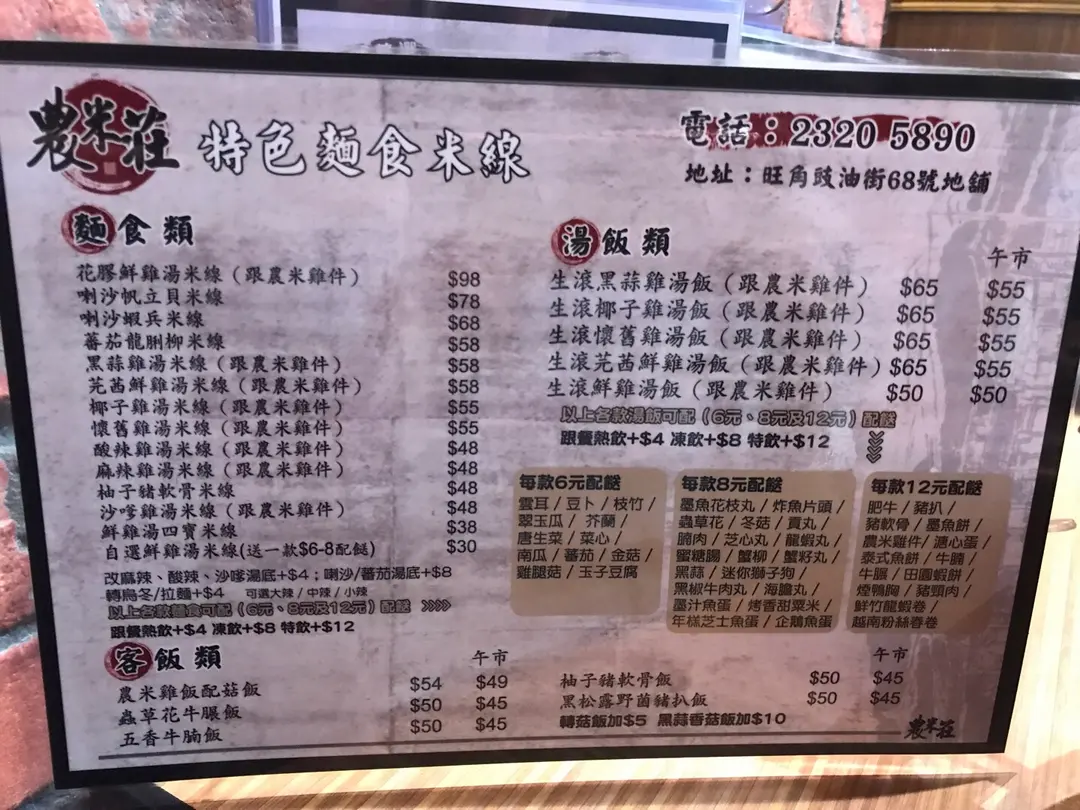 農米莊 特色麵食米線
電話：2320 5890
地址：旺角豉油街68號地舖
麵食類
花膠鮮雞湯米線（跟農米雞件） $98
喇沙帆立貝米線 $78
喇沙蝦兵米線 $68
蕃茄龍脷柳米線 $58
黑蒜雞湯米線（跟農米雞件） $58
芫茜鮮雞湯米線（跟農米雞件） $58
椰子雞湯米線（跟農米雞件） $55
懷舊雞湯米線（跟農米雞件） $55
酸辣雞湯米線（跟農米雞件） $48
麻辣雞湯米線（跟農米雞件） $48
柚子豬軟骨米線 $48
沙嗲雞湯米線（跟農米雞件） $48
鮮雞湯四寶米線 $38
自選鮮雞湯米線(送一款$6-8配餸) $30
改麻辣、酸辣、沙嗲湯底+$4；喇沙/蕃茄湯底+$8
轉烏冬/拉麵+$4 可選大辣 / 中辣 / 小辣
以上各款麵食可配（6元、8元及12元）配餸 >>>>
跟餐熱飲+$4 凍飲+$8 特飲+$12
湯飯類
午市
生滾黑蒜雞湯飯（跟農米雞件） $65 $55
生滾椰子雞湯飯（跟農米雞件） $65 $55
生滾懷舊雞湯飯（跟農米雞件） $65 $55
生滾芫茜鮮雞湯飯（跟農米雞件） $65 $55
生滾鮮雞湯飯（跟農米雞件） $50 $50
以上各款湯飯可配（6元、8元及12元）配餸
跟餐熱飲+$4 凍飲+$8 特飲+$12
每款6元配餸
雲耳 / 豆卜 / 枝竹 /
翠玉瓜 / 芥蘭 /
唐生菜 / 菜心 /
南瓜 / 蕃茄 / 金菇 /
雞腿菇 / 玉子豆腐
每款8元配餸
墨魚花枝丸 / 炸魚片頭 /
蟲草花 / 冬菇 / 貢丸 /
腩肉 / 芝心丸 / 龍蝦丸 /
蜜糖腸 / 蟹柳 / 蟹籽丸 /
黑蒜 / 迷你獅子狗 /
黑椒牛肉丸 / 海膽丸 /
墨汁魚蛋 / 烤香甜粟米 /
年糕芝士魚蛋 / 企鵝魚蛋
每款12元配餸
肥牛 / 豬扒 /
豬軟骨 / 墨魚餅 /
農米雞件 / 溏心蛋 /
泰式魚餅 / 牛腩 /
牛䐁 / 田園蝦餅 /
煙鴨胸 / 豬頸肉 /
鮮竹龍蝦卷 /
越南粉絲春卷
客飯類
午市
農米雞飯配菇飯 $54 $49
蟲草花牛䐁飯 $50 $45
五香牛腩飯 $50 $45
午市
柚子豬軟骨飯 $50 $45
黑松露野菌豬扒飯 $50 $45
轉菇飯加$5 黑蒜香菇飯加$10
農米莊